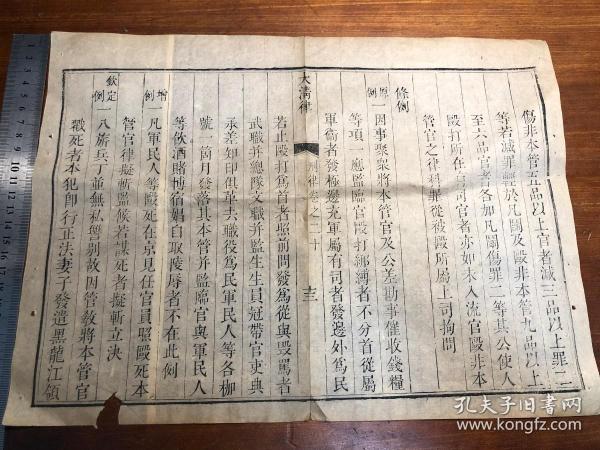 傷非本管五品以上官者減三品以上罪二
等若減罪輕於凡鬭及毆非本管九品以上
至六品官者各加凡鬭傷罪二等其公使人
毆打所在有司官者亦如未入流官毆非本
管官之律科罪從被毆所屬上司拘問
條例
原例
一因事聚衆將本管官及公差勘事催收錢糧
等項一應監臨官毆打綁縛者不分首從屬
軍衛者發極邊充軍屬有司者發邊外爲民
大清律
刑律卷之二十
十三
若止毆打爲首者照前問發爲從與毀罵者
武職并總隊文職并監生生員冠帶官吏典
承差知印俱革去職役爲民軍民人等各枷
號一箇月發落其本管并監臨官與軍民人
等飲酒賭博宿娼自取陵辱者不在此例
增例
一凡軍民人等毆死在京見任官員照毆死本
管官律擬斬監候若謀死者擬斬立決
欽定例
一八旂兵丁並無私讐別故因管教將本管官
戳死者本犯即行正法妻子發遣黑龍江領
孔夫子旧书网
www.kongfz.com